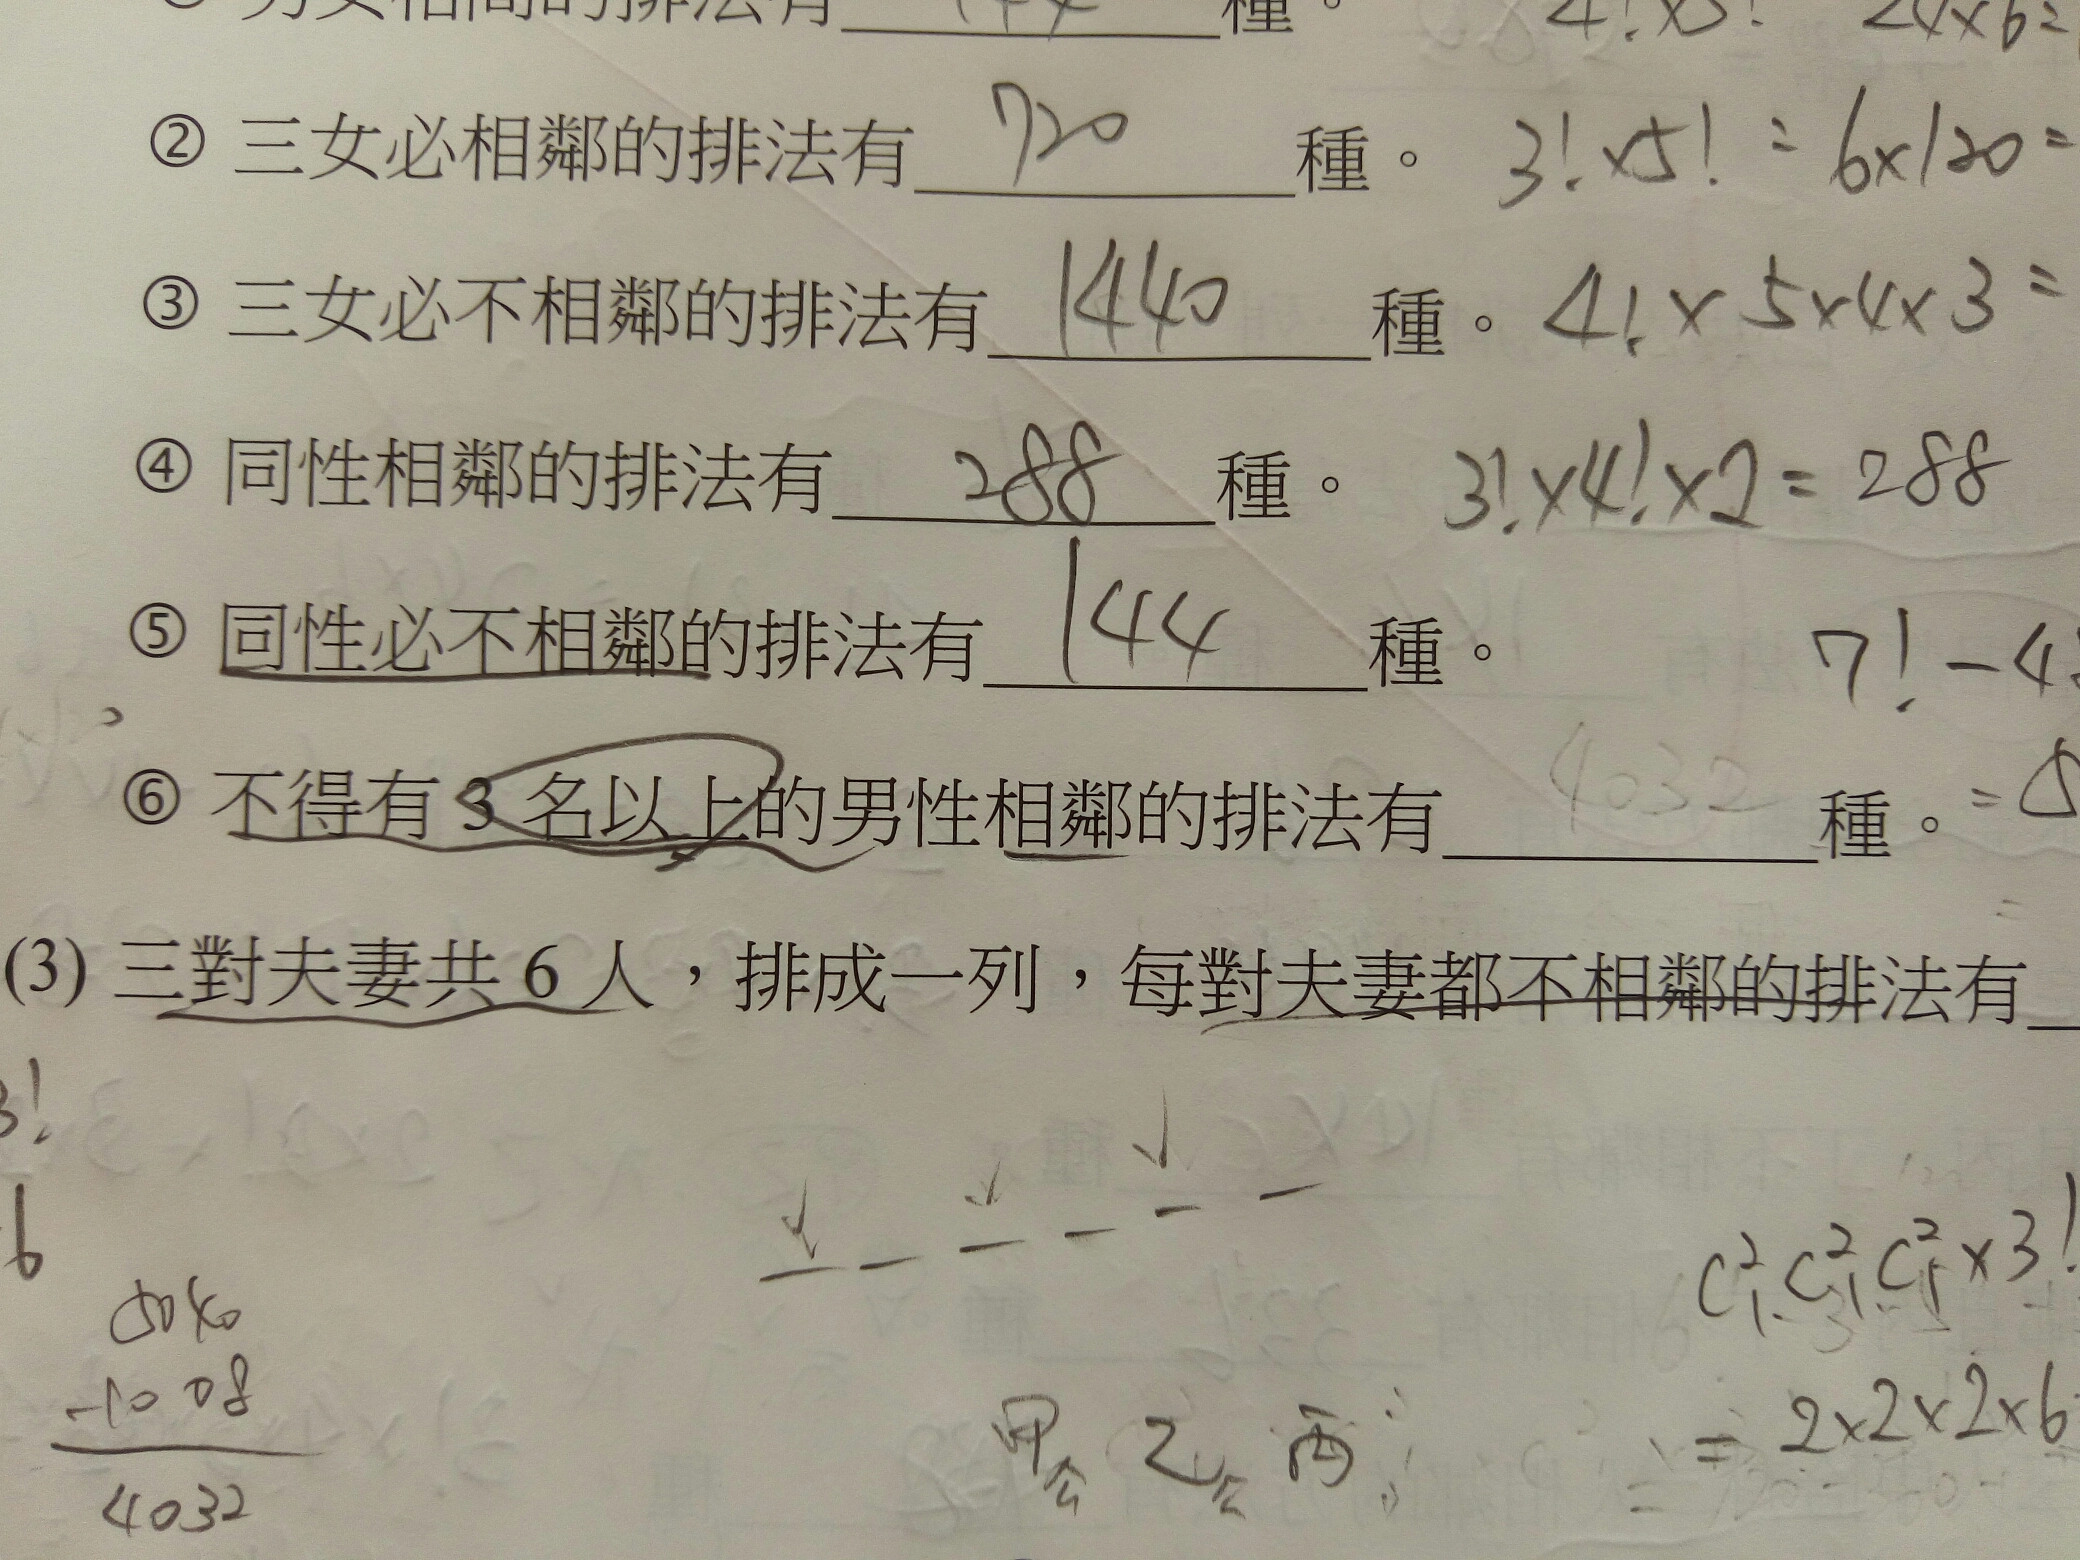 男女相間的排法有 144 種。 4!×3! 24×6=
② 三女必相鄰的排法有 720 種。 3!×5! = 6×120=
③ 三女必不相鄰的排法有 1440 種。 4!×5×4×3=
④ 同性相鄰的排法有 288 種。 3!×4!×2=288
⑤ 同性必不相鄰的排法有 144 種。 7!-4
⑥ 不得有 3 名以上的男性相鄰的排法有 4032 種。 =5
(3) 三對夫妻共 6 人,排成一列,每對夫妻都不相鄰的排法有
3!
6
5040
-1008
4032
甲 乙 丙
C²₁ C²₁ C²₁×3!
= 2×2×2×6